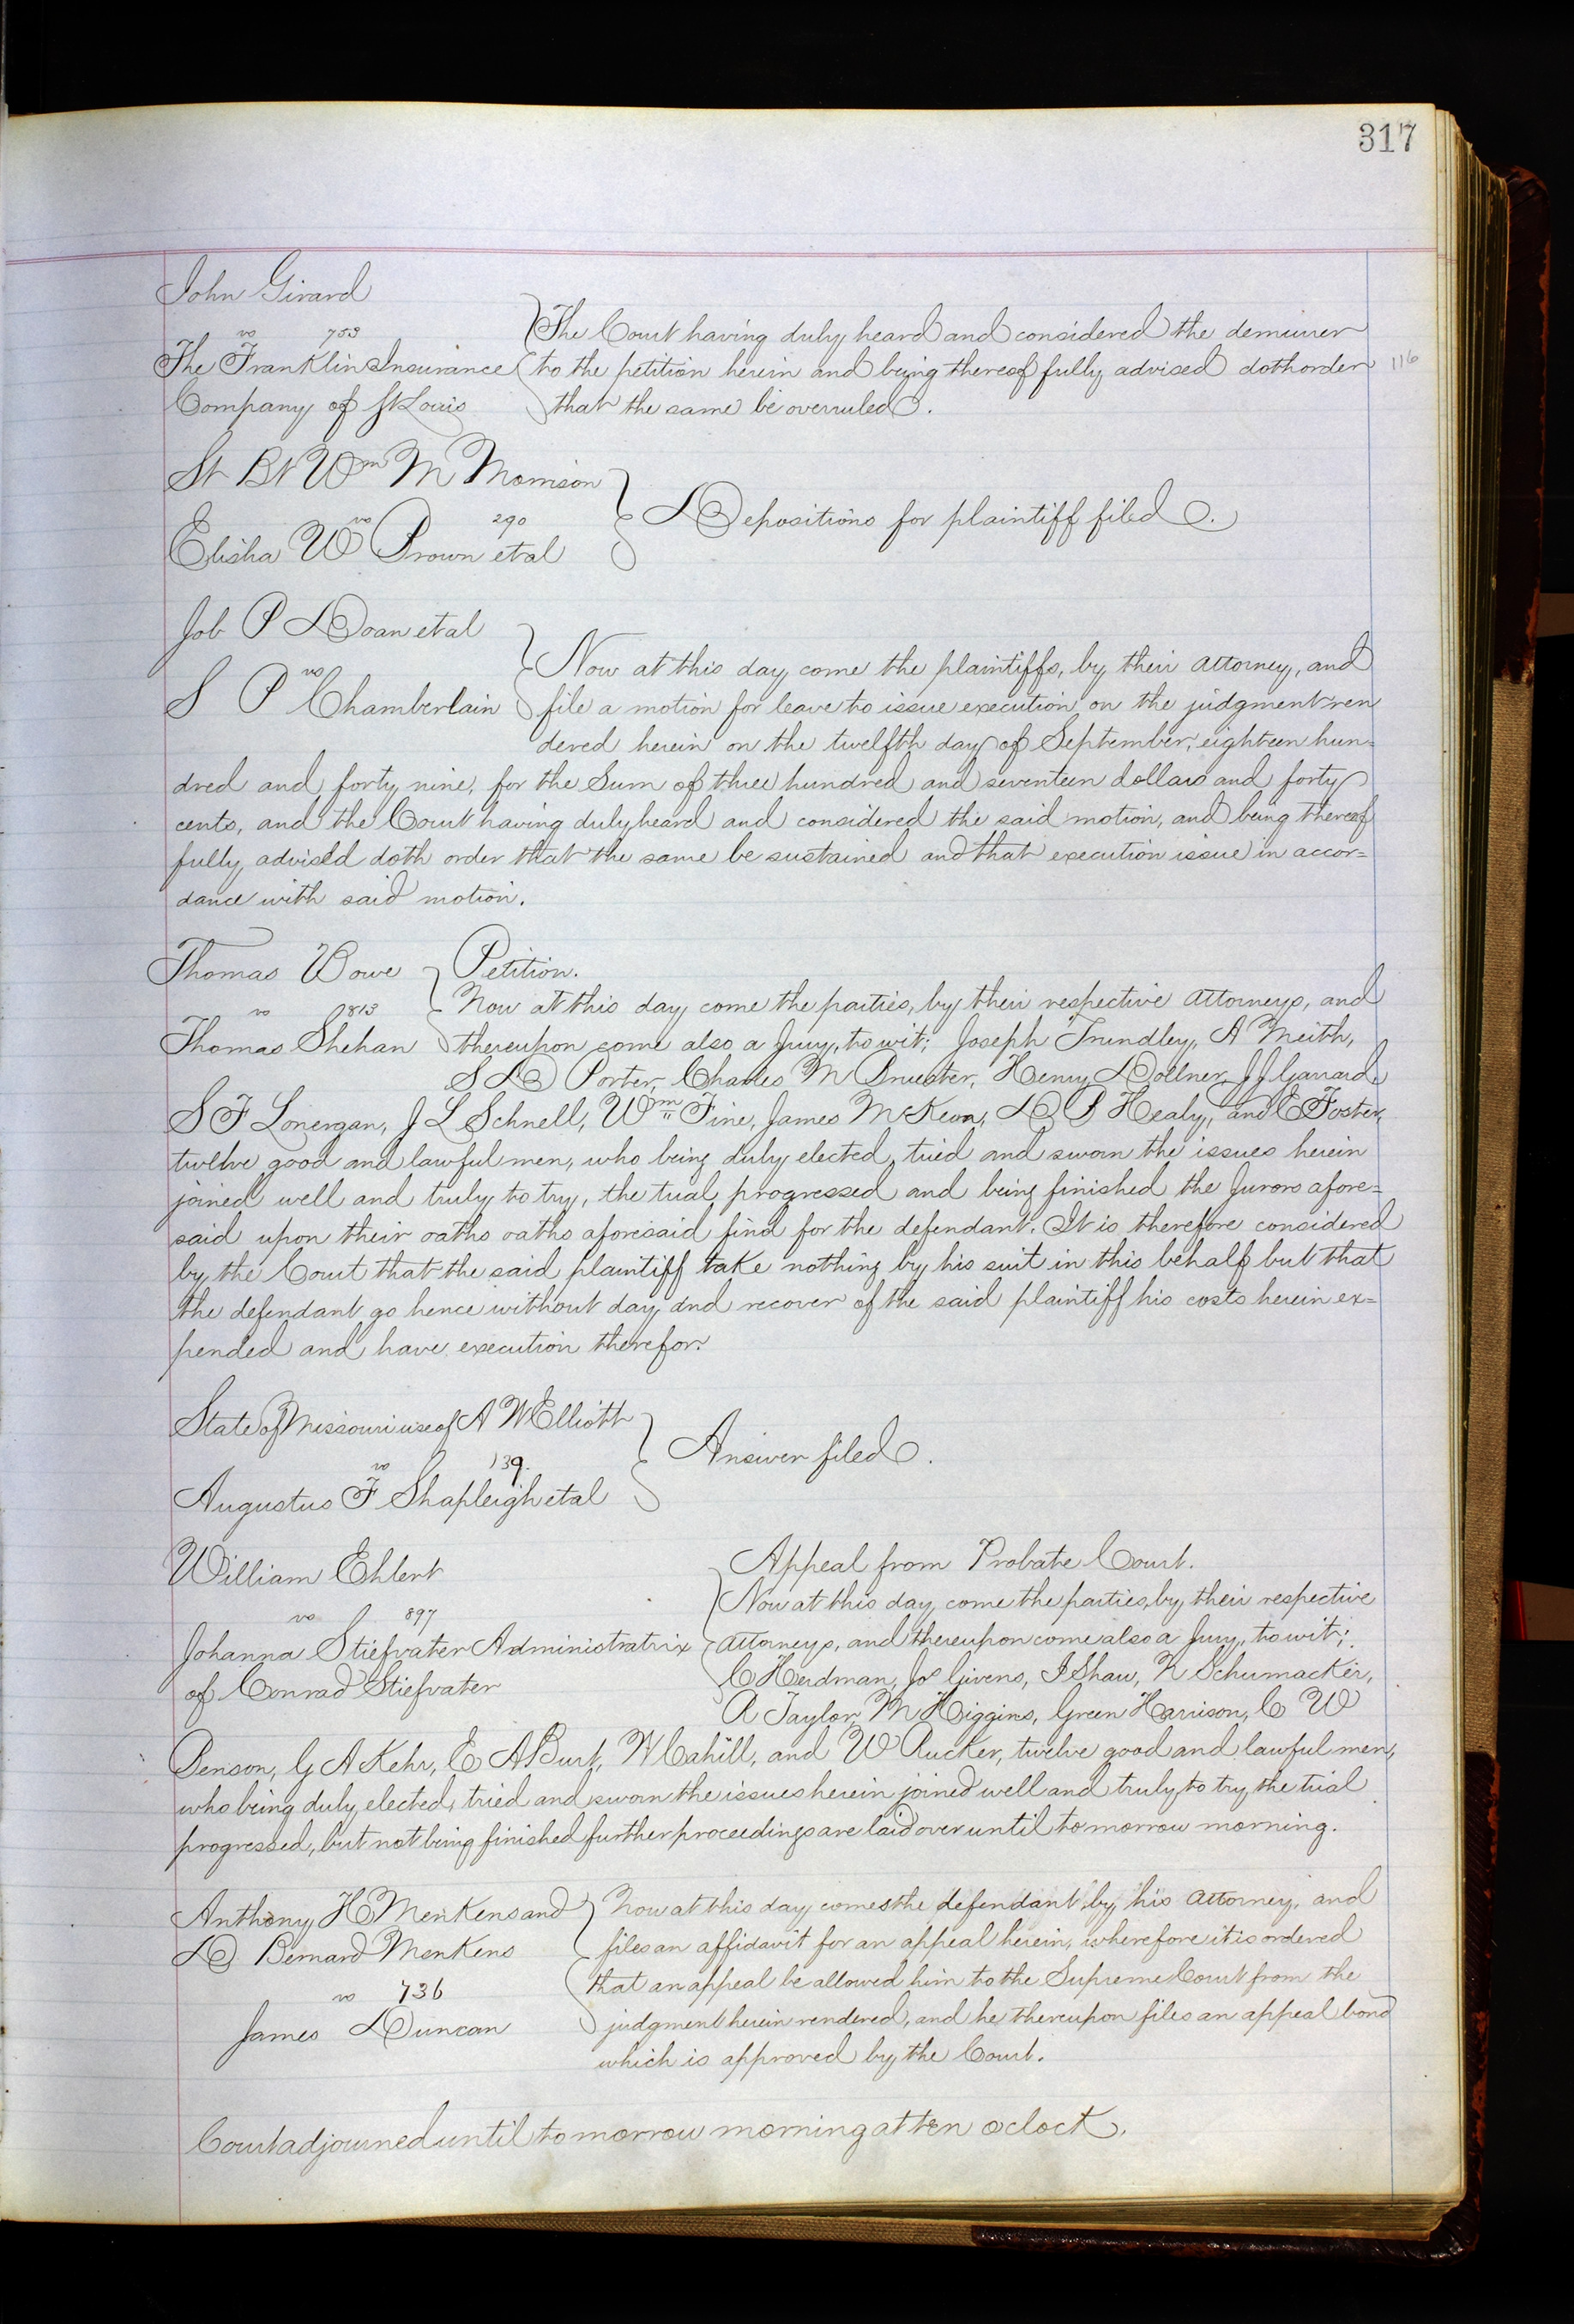 317
John Girard
vs 753
The Franklin Insurance
Company of St Louis
The Court having duly heard and considered the demurrer
to the petition herein and being thereof fully advised doth order
that the same be overruled.
116
St Bt Wm M Morrison
vs 290
Elisha W Brown et al
Depositions for plaintiff filed.
Job P Doan et al
vs
S P Chamberlain
Now at this day come the plaintiffs, by their attorney, and
file a motion for leave to issue execution on the judgment ren
dered herein on the twelfth day of September, eighteen hun=
dred and forty nine, for the Sum of three hundred and seventeen dollars and forty
cents, and the Court having duly heard and considered the said motion, and being thereof
fully advised doth order that the same be sustained and that execution issue in accor=
dance with said motion.
Thomas Bowe
vs 813
Thomas Shehan
Petition.
Now at this day come the parties, by their respective attorneys, and
thereupon come also a Jury, to wit; Joseph Trundley, A Meith,
S D Porter, Charles M Bruester, Henry Dollner, J J Garrard,
S F Lonergan, J L Schnell, Wm Fine, James McKeon, D P Healy, and E Foster,
twelve good and lawful men, who being duly elected, tried and sworn the issues herein
joined well and truly to try, the trial progressed and being finished the Jurors afore=
said upon their oaths oaths aforesaid find for the defendant. It is therefore considered
by the Court that the said plaintiff take nothing by his suit in this behalf but that
the defendant go hence without day and recover of the said plaintiff his costs herein ex=
pended and have execution therefor.
State of Missouri use of A W Elliott
vs 139.
Augustus F Shapleigh et al
Answer filed.
William Ehlert
vs 897
Johanna Stiefvater Administratrix
of Conrad Stiefvater
Appeal from Probate Court.
Now at this day come the parties, by their respective
attorneys, and thereupon come also a Jury, to wit;
C Herdman, Jos Givens, I Shaw, N Schumacker,
R Taylor, M Higgins, Green Harrison, C W
Benson, G A Kehr, E A Burt, W Cahill, and W Rucker, twelve good and lawful men,
who being duly elected, tried and sworn the issues herein joined well and truly to try, the trial
progressed, but not being finished further proceedings are laid over until tomorrow morning.
Anthony H Menkens and
D Bernard Menkens
vs 736
James Duncan
Now at this day comes the defendant, by his attorney, and
files an affidavit for an appeal herein, wherefore it is ordered
that an appeal be allowed him to the Supreme Court from the
judgment herein rendered, and he thereupon files an appeal bond
which is approved by the Court.
Court adjourned until tomorrow morning at ten o'clock.